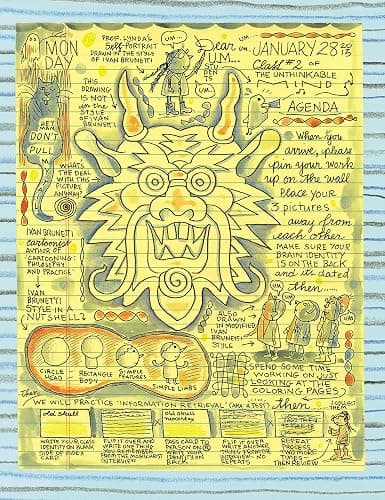 MON
DAY
PROF. LYNDA'S
SELF-PORTRAIT
DRAWN IN THE STYLE
OF IVAN BRUNETTI
UM..
UM...
Dear
UM...
STU
DEN
TS
JANUARY 28 2015
Class #2 OF
THE UNTHINKABLE
MIND
THIS
DRAWING
IS NOT
IN THE
STYLE
OF IVAN
BRUNETTI
UM
AGENDA
HEY
MAN
DON'T
PULL
M
WHAT'S
THE DEAL
WITH THIS
PICTURE
ANYHOW?
When you
arrive, please
pin your work
up on the wall
Place your
3 pictures
away from
each other.
MAKE SURE YOUR
BRAIN IDENTITY
IS ON THE BACK
and it's dated
then....
IVAN BRUNETTI
cartoonist
AUTHOR OF
'CARTOONING:
PHILOSOPHY
AND PRACTICE'
IVAN
BRUNETTI
STYLE IN A
NUTSHELL:
ALSO
DRAWN IN
MODIFIED
IVAN
BRUNETTI
STYLE
UM
UM
UM
CIRCLE
HEAD
RECTANGLE
BODY
SIMPLE
FEATURES
SIMPLE LIMBS
SPEND SOME TIME
WORKING ON JUST
LOOKING AT THE
COLORING PAGES.
then
WE WILL PRACTICE 'INFORMATION RETRIEVAL' (AKA: A TEST)
then
I COLLECT
THEM
old skull
old skull
WRITE YOUR CLASS
IDENTITY ON BLANK
SIDE OF INDEX
CARD
FLIP IT OVER AND
WRITE ONE THING
YOU REMEMBER
FROM THE MCGILCHRIST
INTERVIEW
PASS CARD TO
PERSON ON
WRITE YOUR
IDENTITY ON
BACK
FLIP IT OVER
WRITE ANOTHER
THING FROM
INTERVIEW - NO
REPEATS
REPEAT
PROCESS
TIMES
THEN REVIEW